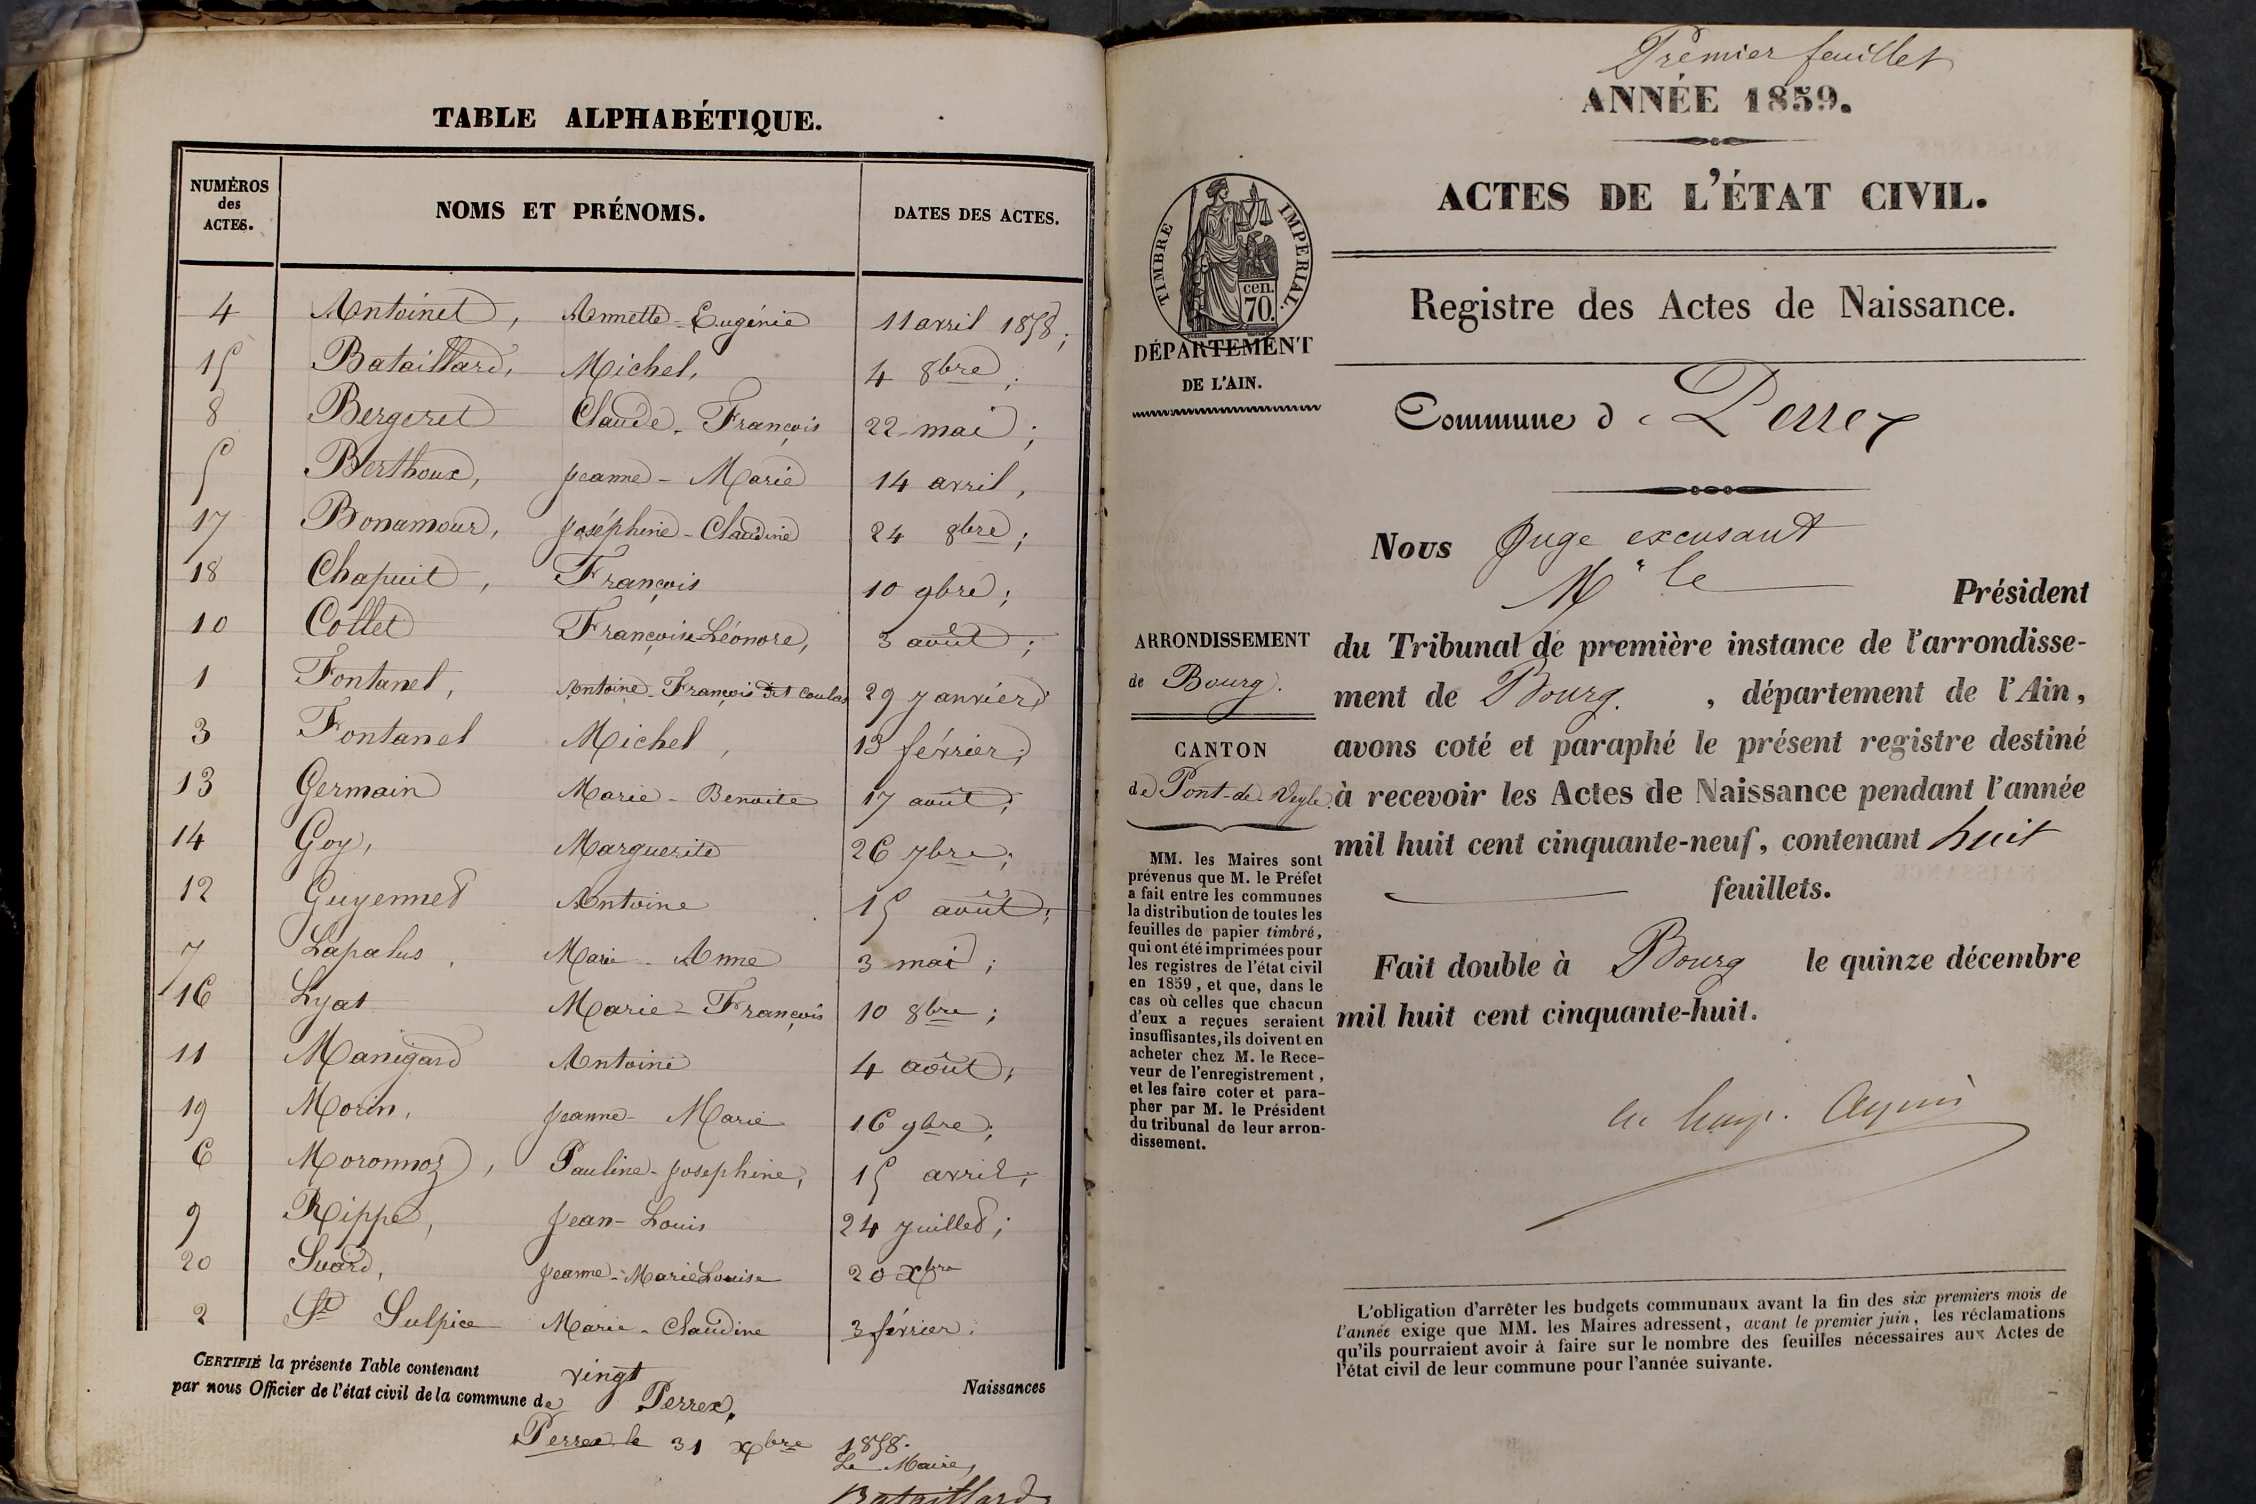 TABLE ALPHABÉTIQUE.
NUMÉROS des ACTES. NOMS ET PRÉNOMS. DATES DES ACTES.
4 Antoinet, Annette-Eugénie 11 avril 1858;
15 Bataillard, Michel, 4 8bre;
8 Bergeret Claude-François 22 mai;
5 Berthoux, Jeanne-Marie 14 avril,
17 Bonamour, Joséphine-Claudine 24 8bre;
18 Chapuit, François 10 9bre;
10 Collet Françoise Léonore, 3 août;
1 Fontanel, Antoine-François dit Coulas 29 janvier;
3 Fontanel Michel, 13 février;
13 Germain Marie-Benoite 17 août;
14 Goy, Marguerite 26 7bre;
12 Guyennet Antoine 15 août;
7 Lapalus, Marie-Anne 3 mai;
16 Lyat Marie-François 10 8bre;
11 Manigard Antoine 4 août;
19 Morin, Jeanne-Marie 16 9bre;
6 Moronnoz, Pauline-Josephine, 15 avril;
9 Rippe, Jean-Louis 24 juillet;
20 Suard, Jeanne-Marie Louise 20 Xbre
2 St Sulpice Marie-Claudine 3 février.
CERTIFIÉ la présente Table contenant vingt Naissances
par nous Officier de l'état civil de la commune de Perrex.
Perrex le 31 Xbre 1858.
Le Maire,
Bataillard
Premier feuillet
ANNÉE 1859.
ACTES DE L'ÉTAT CIVIL.
TIMBRE IMPERIAL.
cen.
70.
DÉPARTEMENT
DE L'AIN.
Registre des Actes de Naissance.
Commune de Perrex
Nous Juge excusant
Mr le Président
du Tribunal de première instance de l'arrondisse-
ment de Bourg. , département de l'Ain,
avons coté et paraphé le présent registre destiné
à recevoir les Actes de Naissance pendant l'année
mil huit cent cinquante-neuf, contenant huit
feuillets.
Fait double à Bourg le quinze décembre
mil huit cent cinquante-huit.
ARRONDISSEMENT
de Bourg.
CANTON
de Pont-de-Veyle
MM. les Maires sont
prévenus que M. le Préfet
a fait entre les communes
la distribution de toutes les
feuilles de papier timbré,
qui ont été imprimées pour
les registres de l'état civil
en 1859, et que, dans le
cas où celles que chacun
d'eux a reçues seraient
insuffisantes, ils doivent en
acheter chez M. le Rece-
veur de l'enregistrement,
et les faire coter et para-
pher par M. le Président
du tribunal de leur arron-
dissement.
L'obligation d'arrêter les budgets communaux avant la fin des six premiers mois de
l'année exige que MM. les Maires adressent, avant le premier juin, les réclamations
qu'ils pourraient avoir à faire sur le nombre des feuilles nécessaires aux Actes de
l'état civil de leur commune pour l'année suivante.